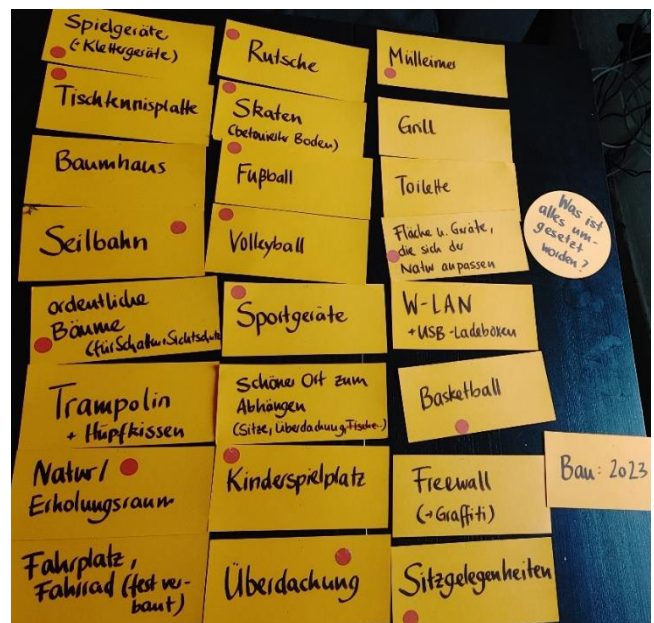 Spielgeräte
(+ Klettergeräte)
Tischtennisplatte
Baumhaus
Seilbahn
ordentliche
Bäume
(für Schatten, Sichtschutz
Trampolin
+ Hüpfkissen
Natur/
Erholungsraum
Fahrplatz,
Fahrrad (fest ver-
baut)
Rutsche
Skaten
(betonierter Boden)
Fußball
Volleyball
Sportgeräte
Schöner Ort zum
Abhängen
(Sitze, Überdachung, Tische..)
Kinderspielplatz
Überdachung
Mülleimer
Grill
Toilette
Fläche u. Geräte,
die sich der
Natur anpassen
W-LAN
+ USB-Ladeboxen
Basketball
Freewall
(→ Graffiti)
Sitzgelegenheiten
Was ist
alles um-
gesetzt
worden?
Bau: 2023